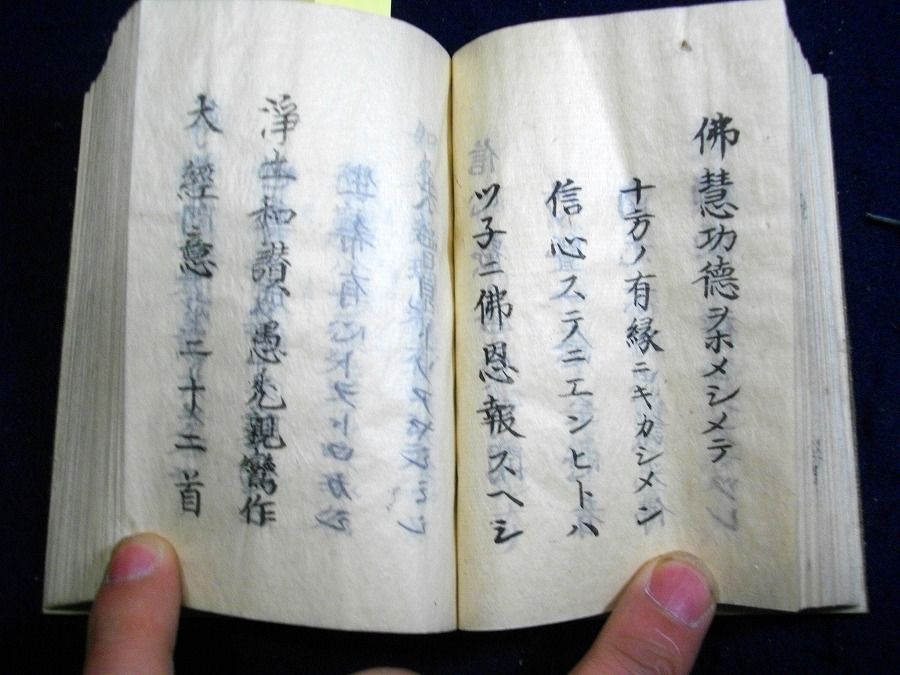 佛慧功德ヲホメシメテ
十方ノ有縁ニキカシメン
信心ステニエンヒトハ
ツ子ニ佛恩報スヘシ
淨土和讃 愚禿親鸞作
大經意 二十二首